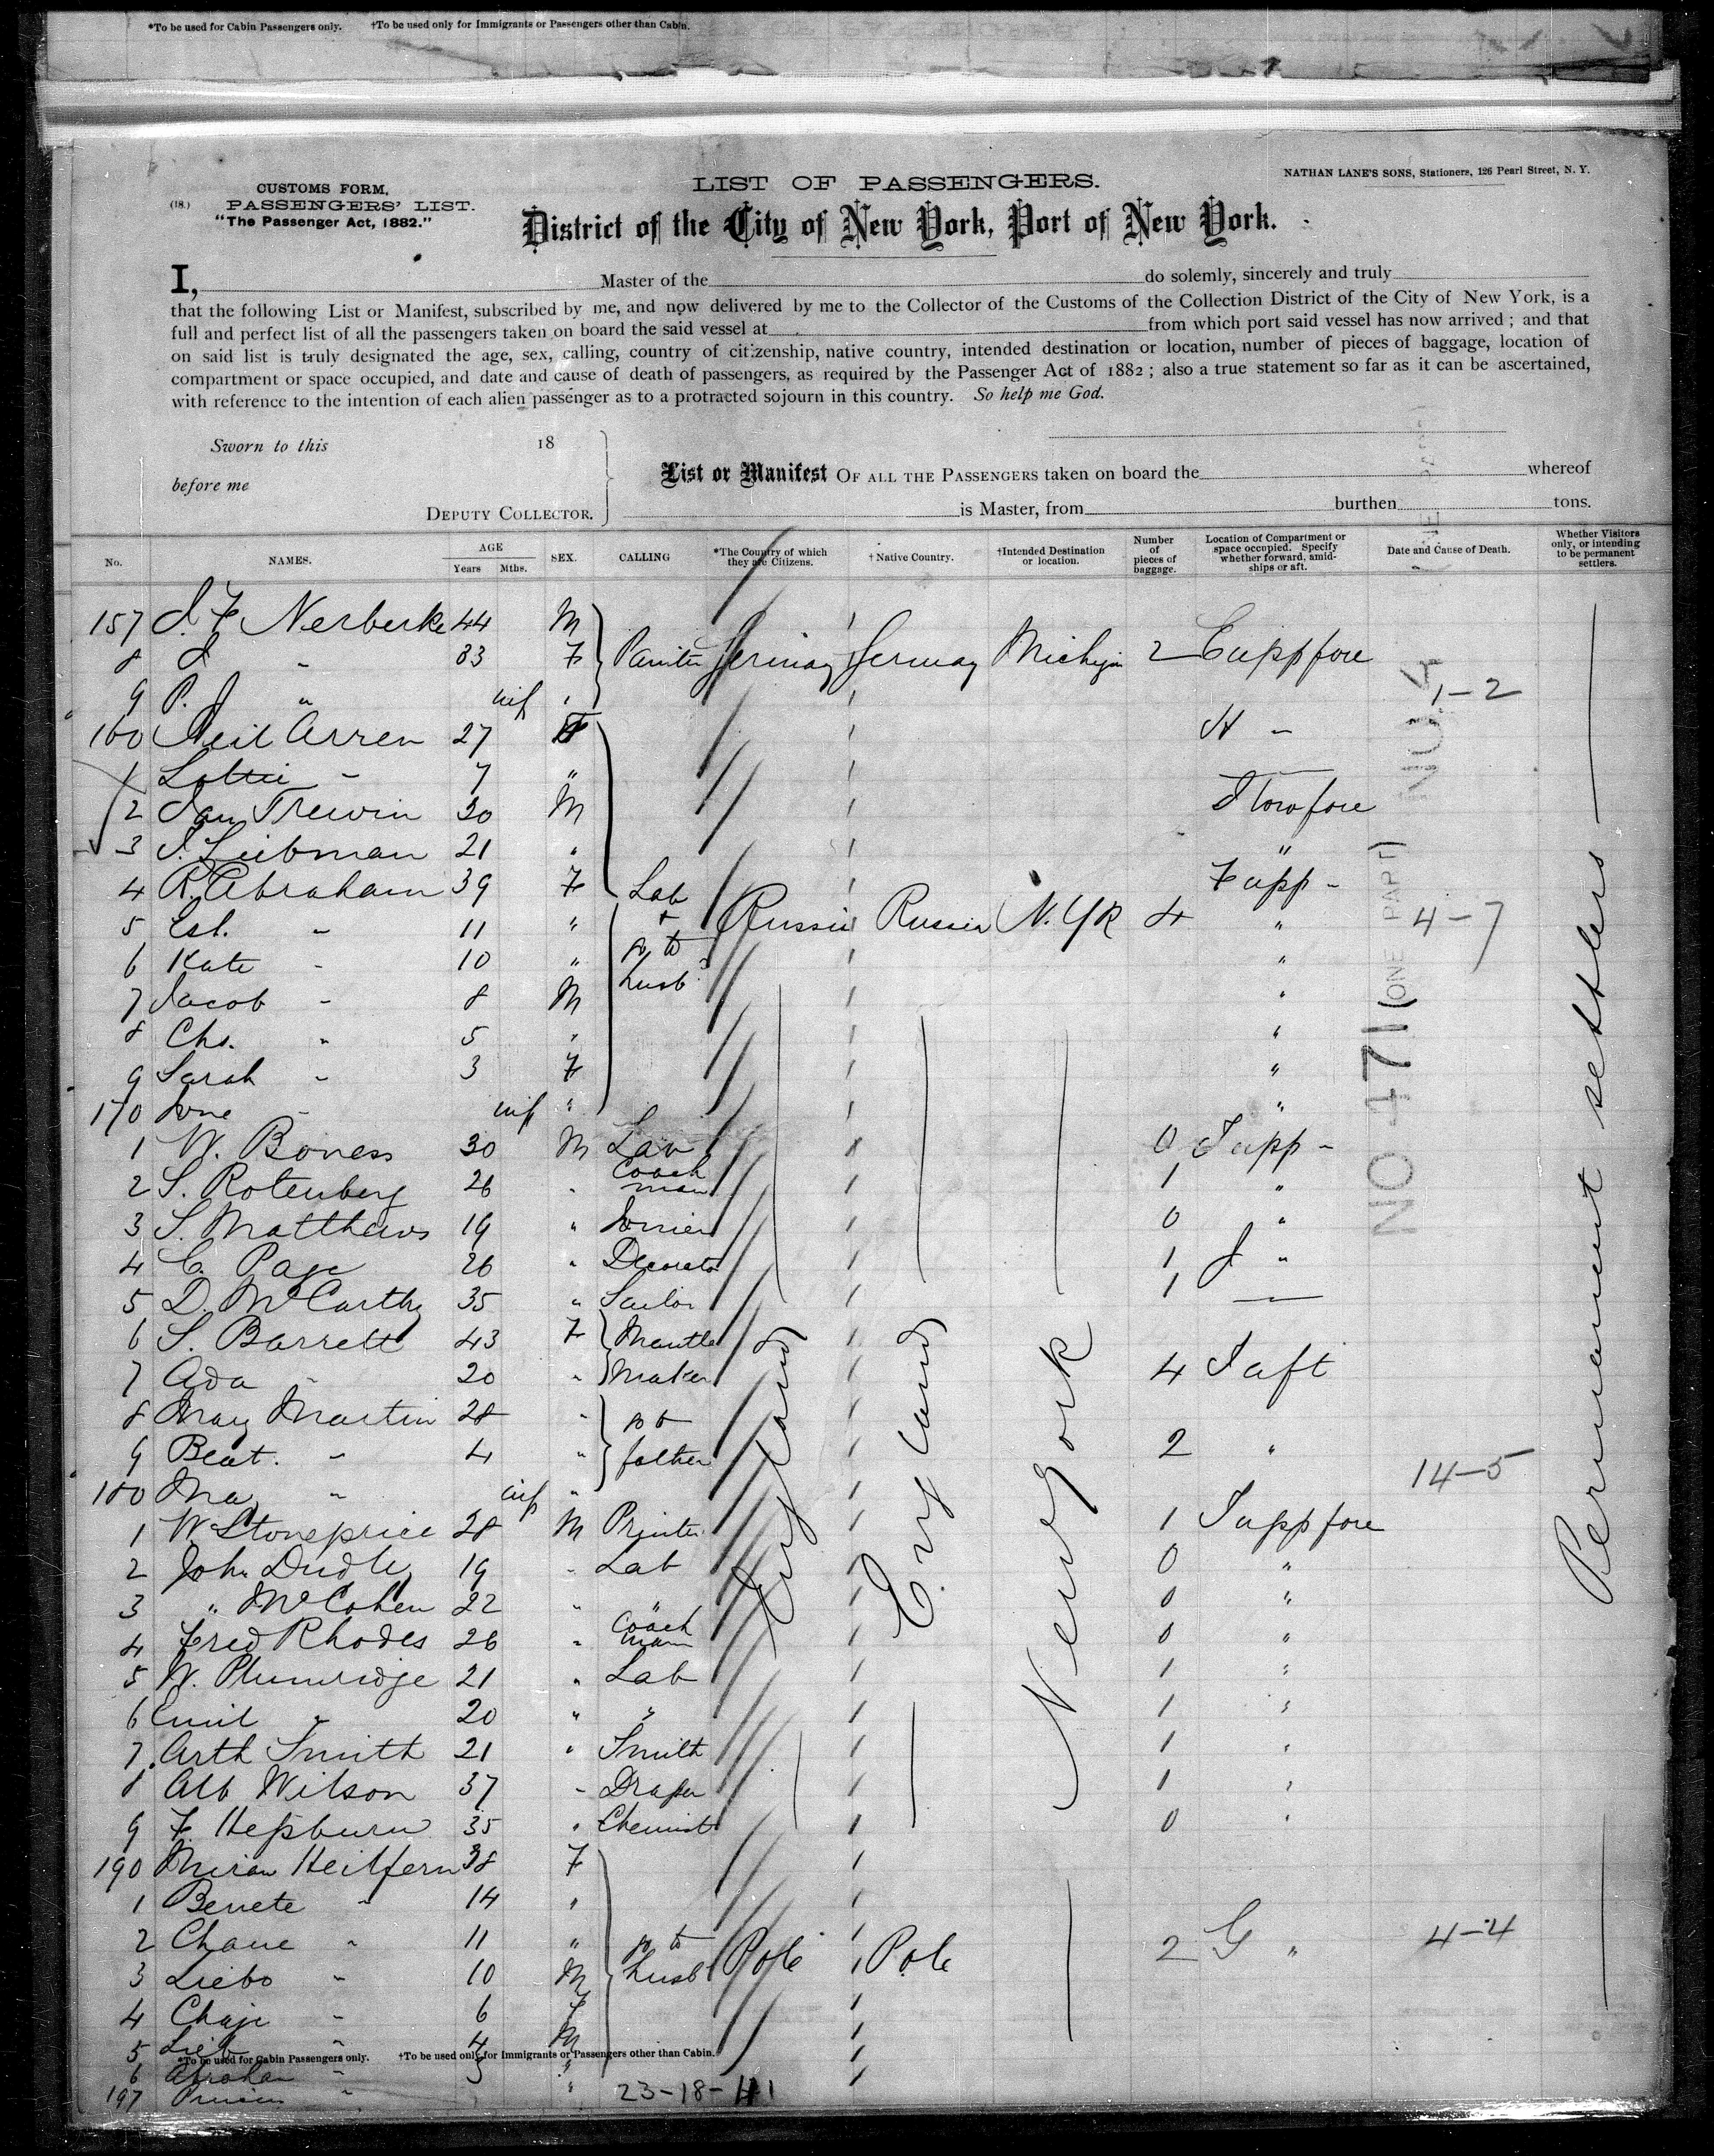 *To be used for Cabin Passengers only. †To be used only for Immigrants or Passengers other than Cabin.
NATHAN LANE'S SONS, Stationers, 126 Pearl Street, N. Y.
(18.) CUSTOMS FORM.
PASSENGERS' LIST.
"The Passenger Act, 1882."
LIST OF PASSENGERS.
District of the City of New York, Port of New York.
I, Master of the do solemly, sincerely and truly
that the following List or Manifest, subscribed by me, and now delivered by me to the Collector of the Customs of the Collection District of the City of New York, is a
full and perfect list of all the passengers taken on board the said vessel at from which port said vessel has now arrived; and that
on said list is truly designated the age, sex, calling, country of citizenship, native country, intended destination or location, number of pieces of baggage, location of
compartment or space occupied, and date and cause of death of passengers, as required by the Passenger Act of 1882; also a true statement so far as it can be ascertained,
with reference to the intention of each alien passenger as to a protracted sojourn in this country. So help me God.
Sworn to this 18
before me
DEPUTY COLLECTOR.
List or Manifest OF ALL THE PASSENGERS taken on board the whereof
is Master, from burthen tons.
No. NAMES. AGE Years Mths. SEX. CALLING *The Country of which they are Citizens. †Native Country. †Intended Destination or location. Number of pieces of baggage. Location of Compartment or space occupied. Specify whether forward, amidships or aft. Date and Cause of Death. Whether Visitors only, or intending to be permanent settlers.
157 J. F Nerberke 44 M
8 " 33 F Painter Germany Germany Michigan 2 E upp fore
9 P. J " inf " 1-2
160 Arren 27 F H "
1 Lottie " 7 "
2 Jan Trewin 30 M I low fore
3 J. Liebman 21 " "
4 R. Abraham 39 F Lab F upp "
5 Est. " 11 " Russia Russia N. Yk 4 " 4-7
6 Kate " 10 " to husb "
7 Jacob " 8 M "
8 Chs. " 5 " "
9 Sarah " 3 F "
170 " inf " "
1 W. Boness 30 M 0 I upp "
2 S. Rotenberg 26 " Coach man 1 "
3 S. Matthews 19 " Joiner 0 "
4 C. Page 26 " Decorator 1 J "
5 D. McCarthy 35 " Sailor 1
6 S. Barrett 43 F Mantle
7 Ada " 20 " Maker 4 I aft
8 May Martin 28 " to
9 Beat. " 4 " father 2 "
180 May " inf " 14-5
1 W Stoneprice 28 M Printer 1 I upp fore
2 John Dudley 19 " Lab 0 "
3 " McCohen 22 " " 0 "
4 Fred Rhodes 26 " Coach man 0 "
5 W. Plumridge 21 " Lab 1 "
6 Emil " 20 " " 1 "
7 Arth Smith 21 " Smith 1 "
8 Alb Wilson 37 " Draper 1 "
9 F. Hepburn 35 " Chemist 0 "
England England New York
Permanent settlers
NO 471 (ONE PART)
190 Miriam Heilfern 38 F
1 Benete " 14 "
2 Chane " 11 " to husb Pole Pole 2 G " 4-4
3 Liebo " 10 M
4 Chaje " 6 F
5 Lieb " 4 M
*To be used for Cabin Passengers only. †To be used only for Immigrants or Passengers other than Cabin.
6 Abraham " 3 "
197 " "
23-18-41